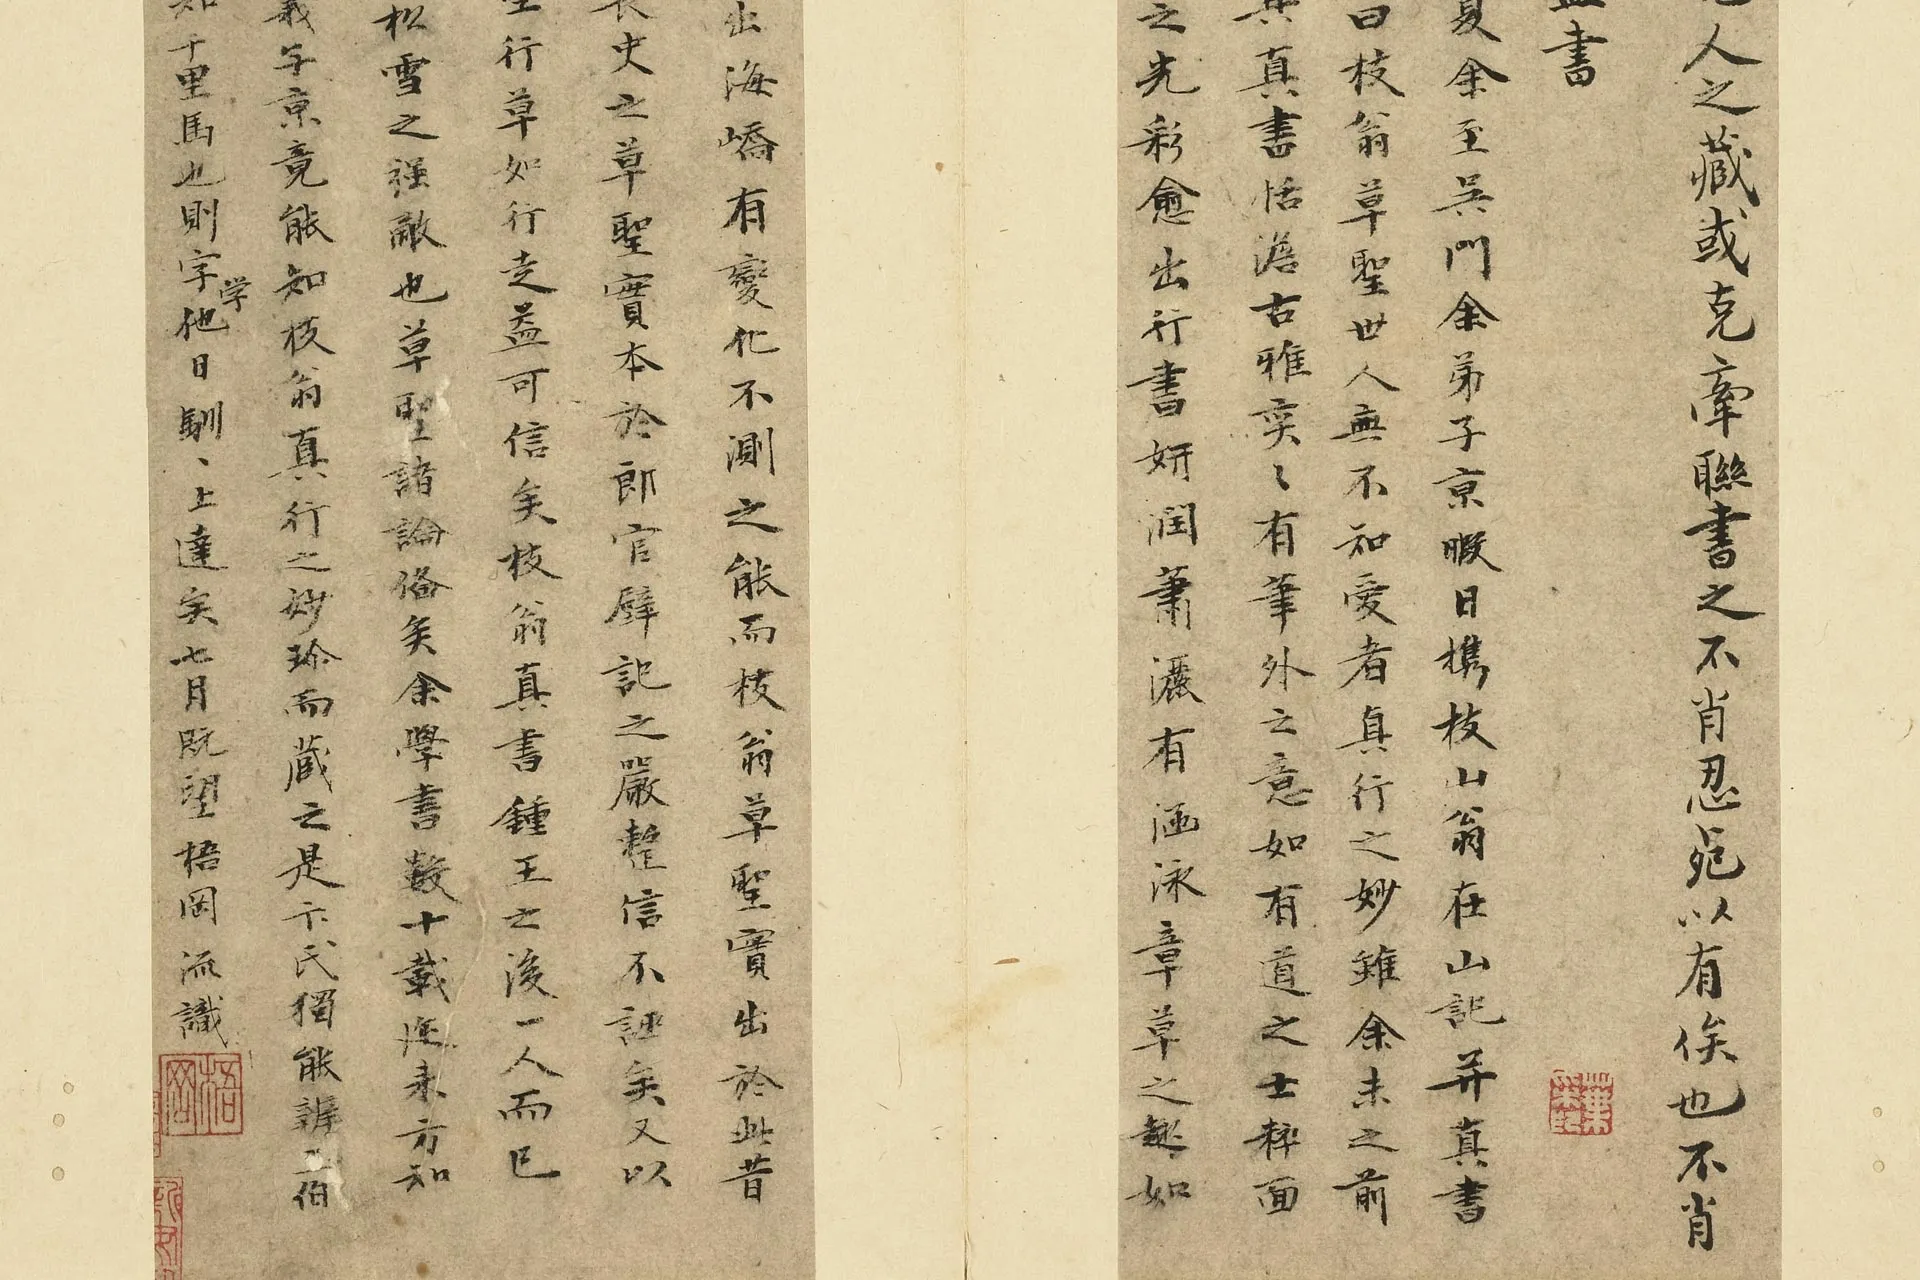 人之藏或克牽聯書之不肖忍死以有俟也不肖
書
夏余至吳門余弟子京暇日携枝山翁在山記并真書
曰枝翁草聖世人無不知愛者真行之妙雖余未之前
其真書恬澹古雅奕〻有筆外之意如有道之士粹面
之光彩愈出行書妍潤蕭灑有涵泳章草之趣如
出海嶠有變化不測之能而枝翁草聖實出於此昔
長史之草聖實本於郎官壁記之嚴整信不誣矣又以
行草如行走益可信矣枝翁真書鍾王之後一人而已
松雪之強敵也草聖諸論俗矣余學書數十載迩来方知
義子京竟能知枝翁真行之妙珍而藏之是卞氏獨能辨伯
千里馬也則字学他日馴、上達矣七月既望梧岡流識
梧岡
葉